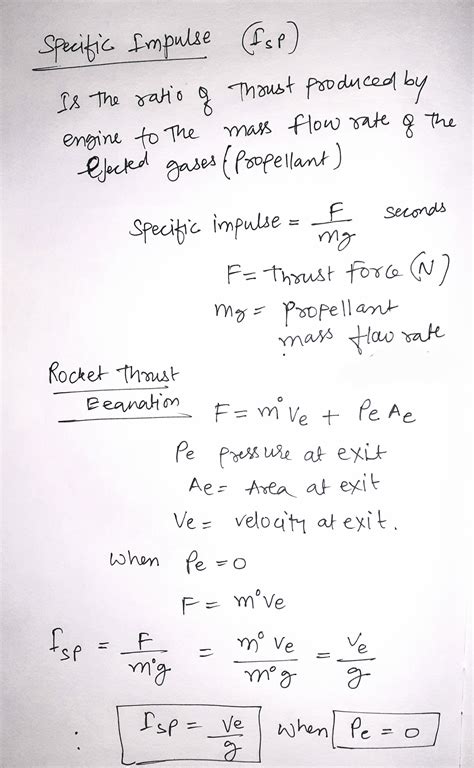 Specific Impulse (Isp)
Is The ratio of Thrust produced by
engine to The mass flow rate of The
Ejected gases (Propellant)
Specific impulse = F/mg seconds
F = Thrust force (N)
mg = Propellant
mass flow rate
Rocket Thrust
Eeanation F = m° Ve + Pe Ae
Pe pressure at exit
Ae = Area at exit
Ve = velocity at exit.
When Pe = 0
F = m° Ve
Isp = F/m°g = m° Ve/m°g = Ve/g
∴ Isp = Ve/g when Pe = 0